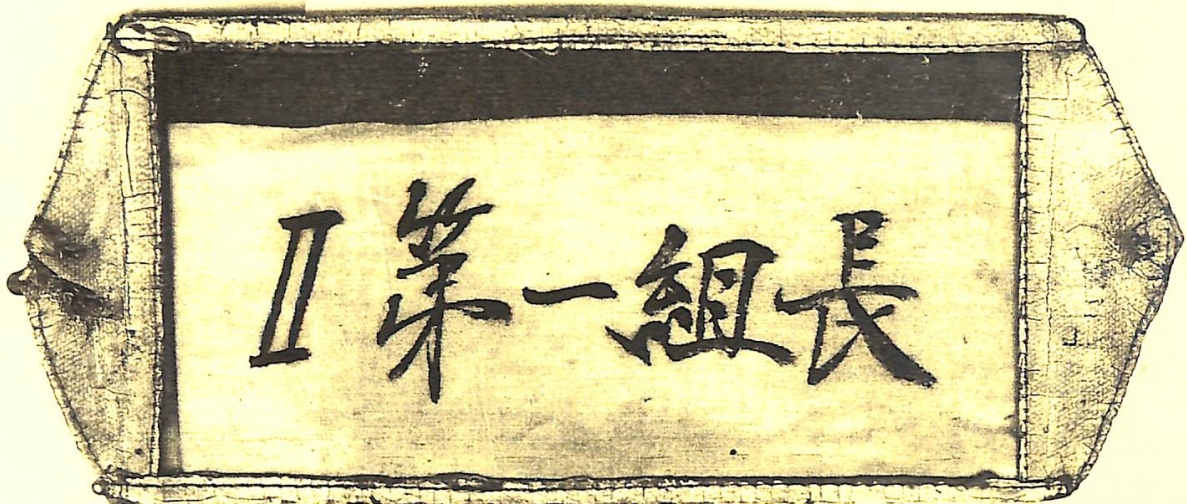 Ⅱ第一組長